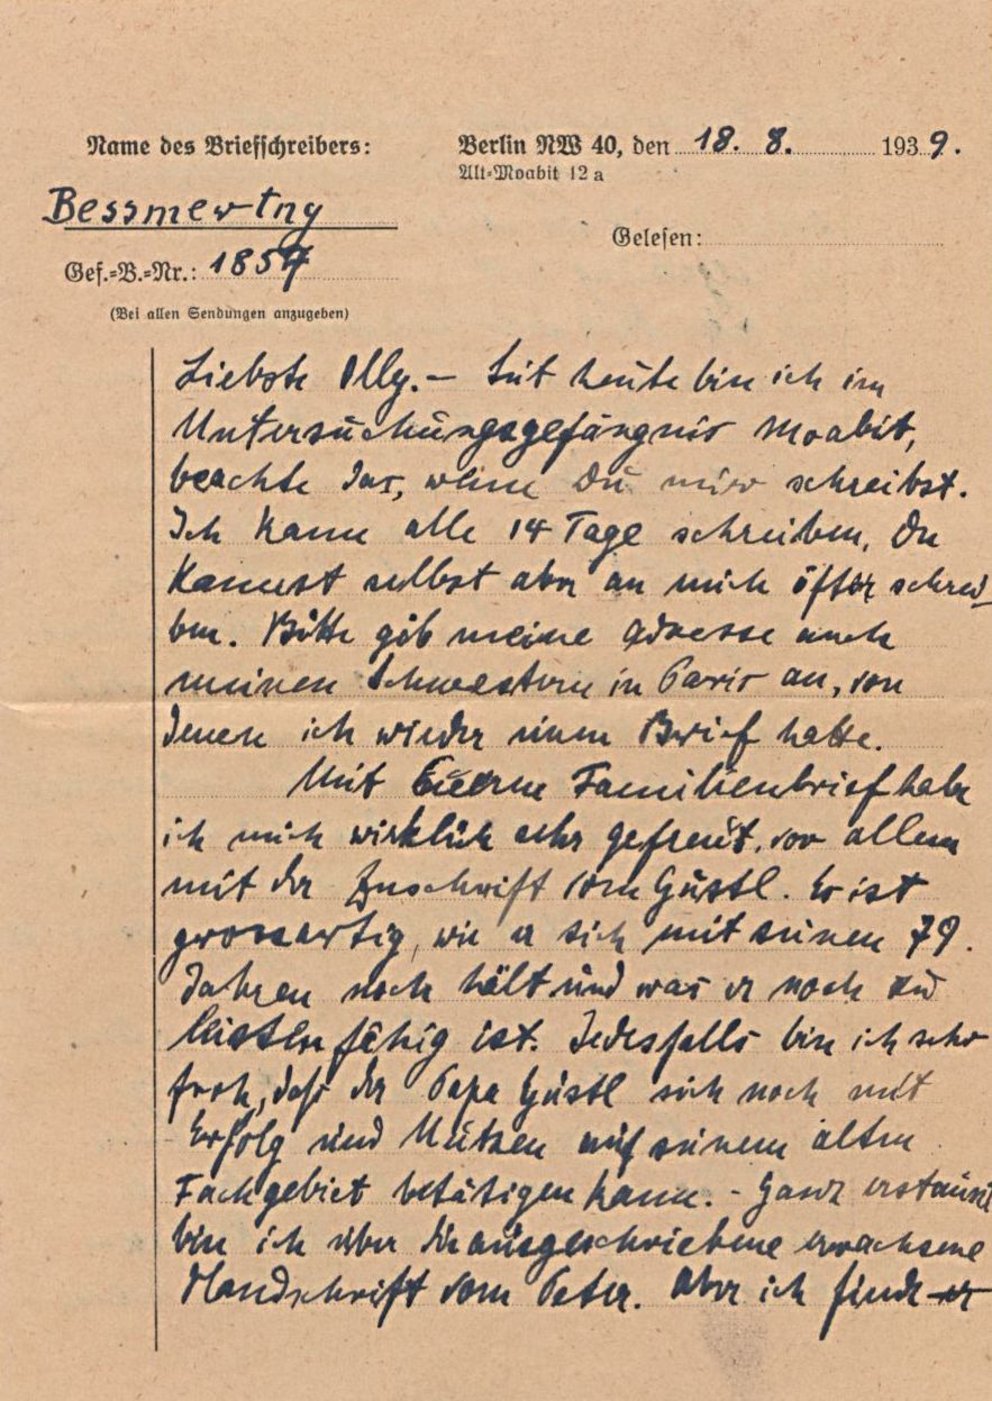 Name des Briefschreibers:
Berlin NW 40, den 18. 8. 1939.
Alt-Moabit 12 a
Bessmertny
Gelesen:
Gef.-B.-Nr.: 1857
(Bei allen Sendungen anzugeben)
Liebste Olly. – Seit heute bin ich im
Untersuchungsgefängnis Moabit,
beachte das, wenn Du mir schreibst.
Ich kann alle 14 Tage schreiben, Du
kannst selbst aber an mich öfter schrei-
ben. Bitte gib meine Adresse auch
meinen Schwestern in Paris an, von
denen ich wieder einen Brief hatte.
Mit Euerm Familienbrief habe
ich mich wirklich sehr gefreut, vor allem
mit der Zuschrift vom Gustl. Es ist
grossartig, wie er sich mit seinen 79.
Jahren noch hält und was er noch zu
leisten fähig ist. Jedesfalls bin ich sehr
froh, daß der Papa Gustl sich noch mit
Erfolg und Nutzen auf seinem alten
Fachgebiet betätigen kann. - Ganz erstaunt
bin ich über die ausgeschriebene erwachsene
Handschrift vom Peter. Aber ich finde er